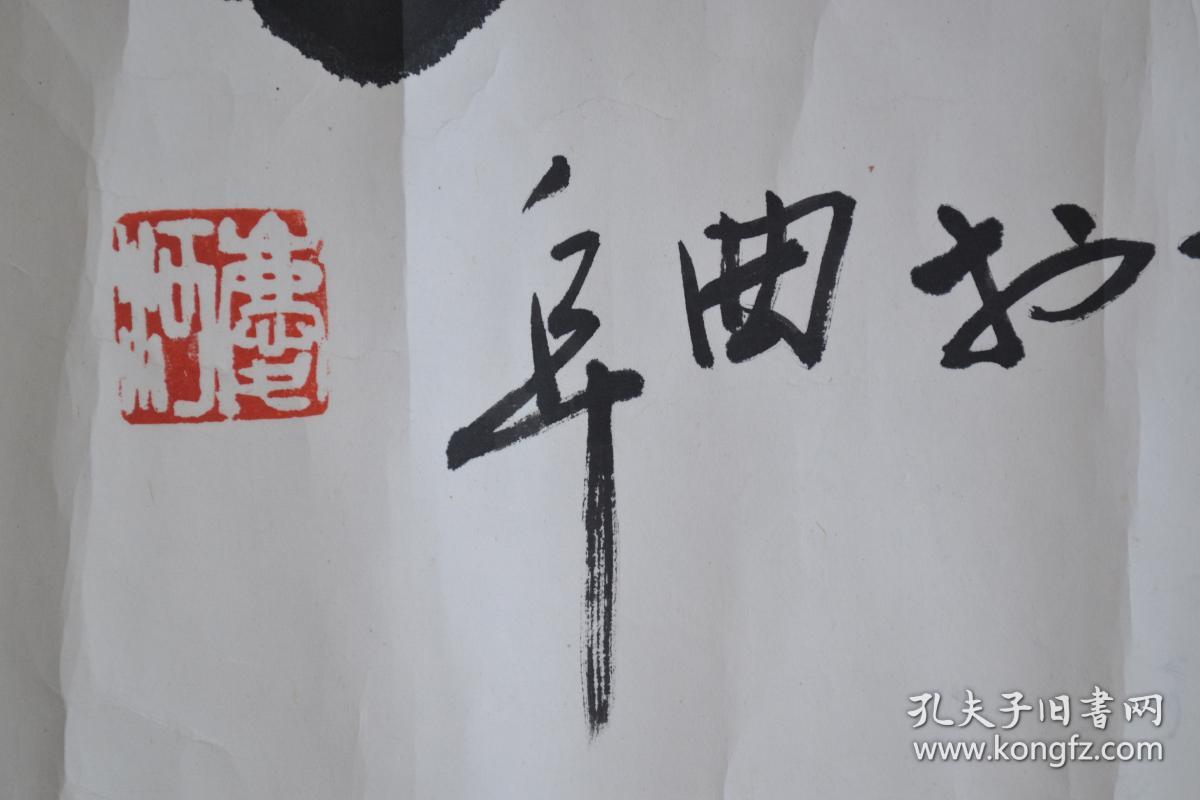 於曲阜
孔夫子旧書网
www.kongfz.com